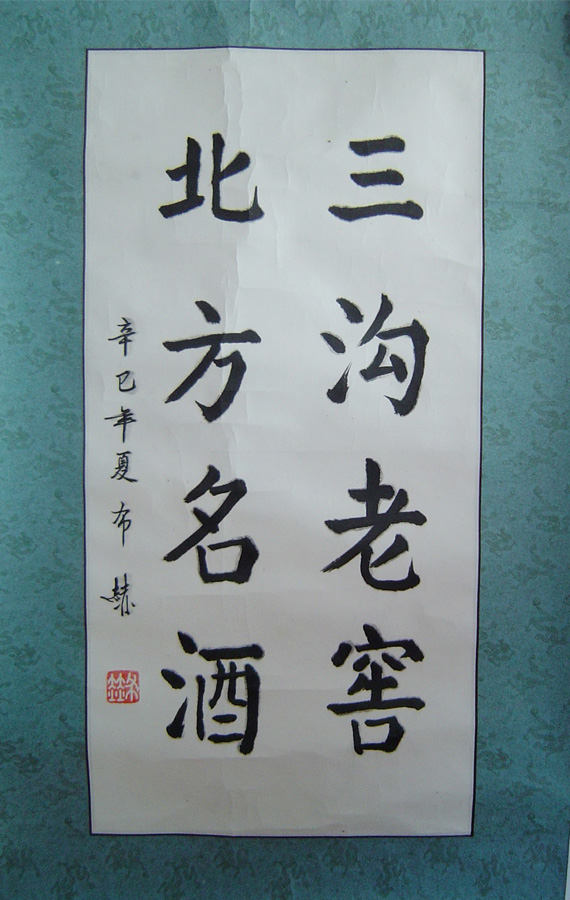 三沟老窖
北方名酒
辛巳年夏布赫
布赫